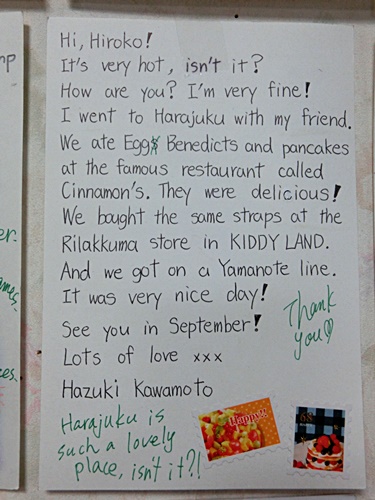 Hi, Hiroko!
It's very hot, isn't it?
How are you? I'm very fine!
I went to Harajuku with my friend.
We ate Eggs Benedicts and pancakes
at the famous restaurant called
Cinnamon's. They were delicious!
We baught the same straps at the
Rilakkuma store in KIDDY LAND.
And we got on a Yamanote line.
It was very nice day!
See you in September!
Lots of love xxx
Hazuki Kawamoto
Thank
you♡
Harajuku is
such a lovely
place, isn't it?!
Happy!!